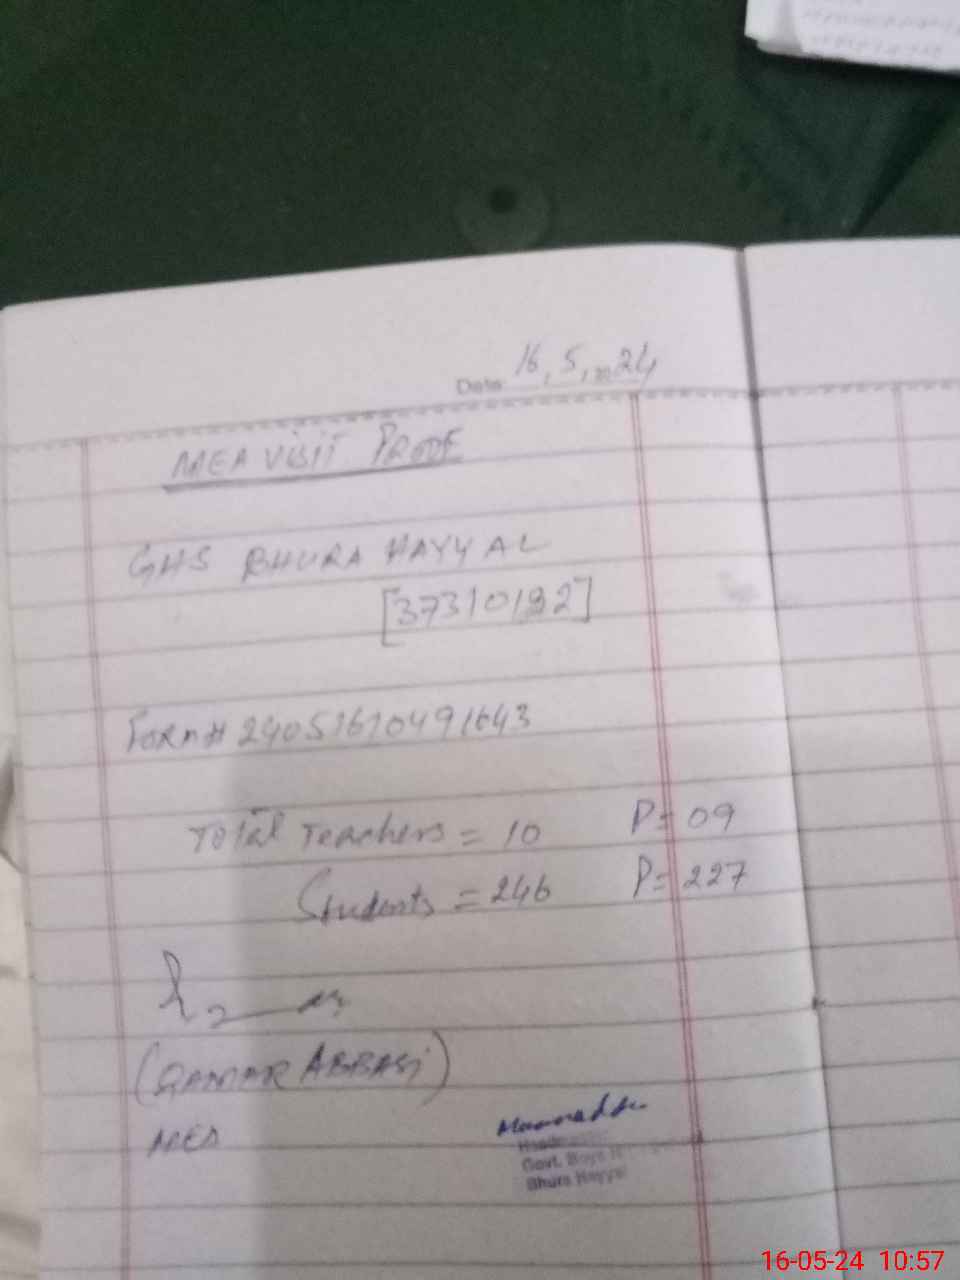 Date 16, 5, 20 24
MEA VISIT PROOF
GHS BHURA HAYYAL
[37310192]
Form# 24051610491643
Total Teachers = 10 P= 09
Students = 246 P= 227
(QAMAR ABBASI)
MEA
Govt. Boys H
Bhura Hayyal
16-05-24 10:57